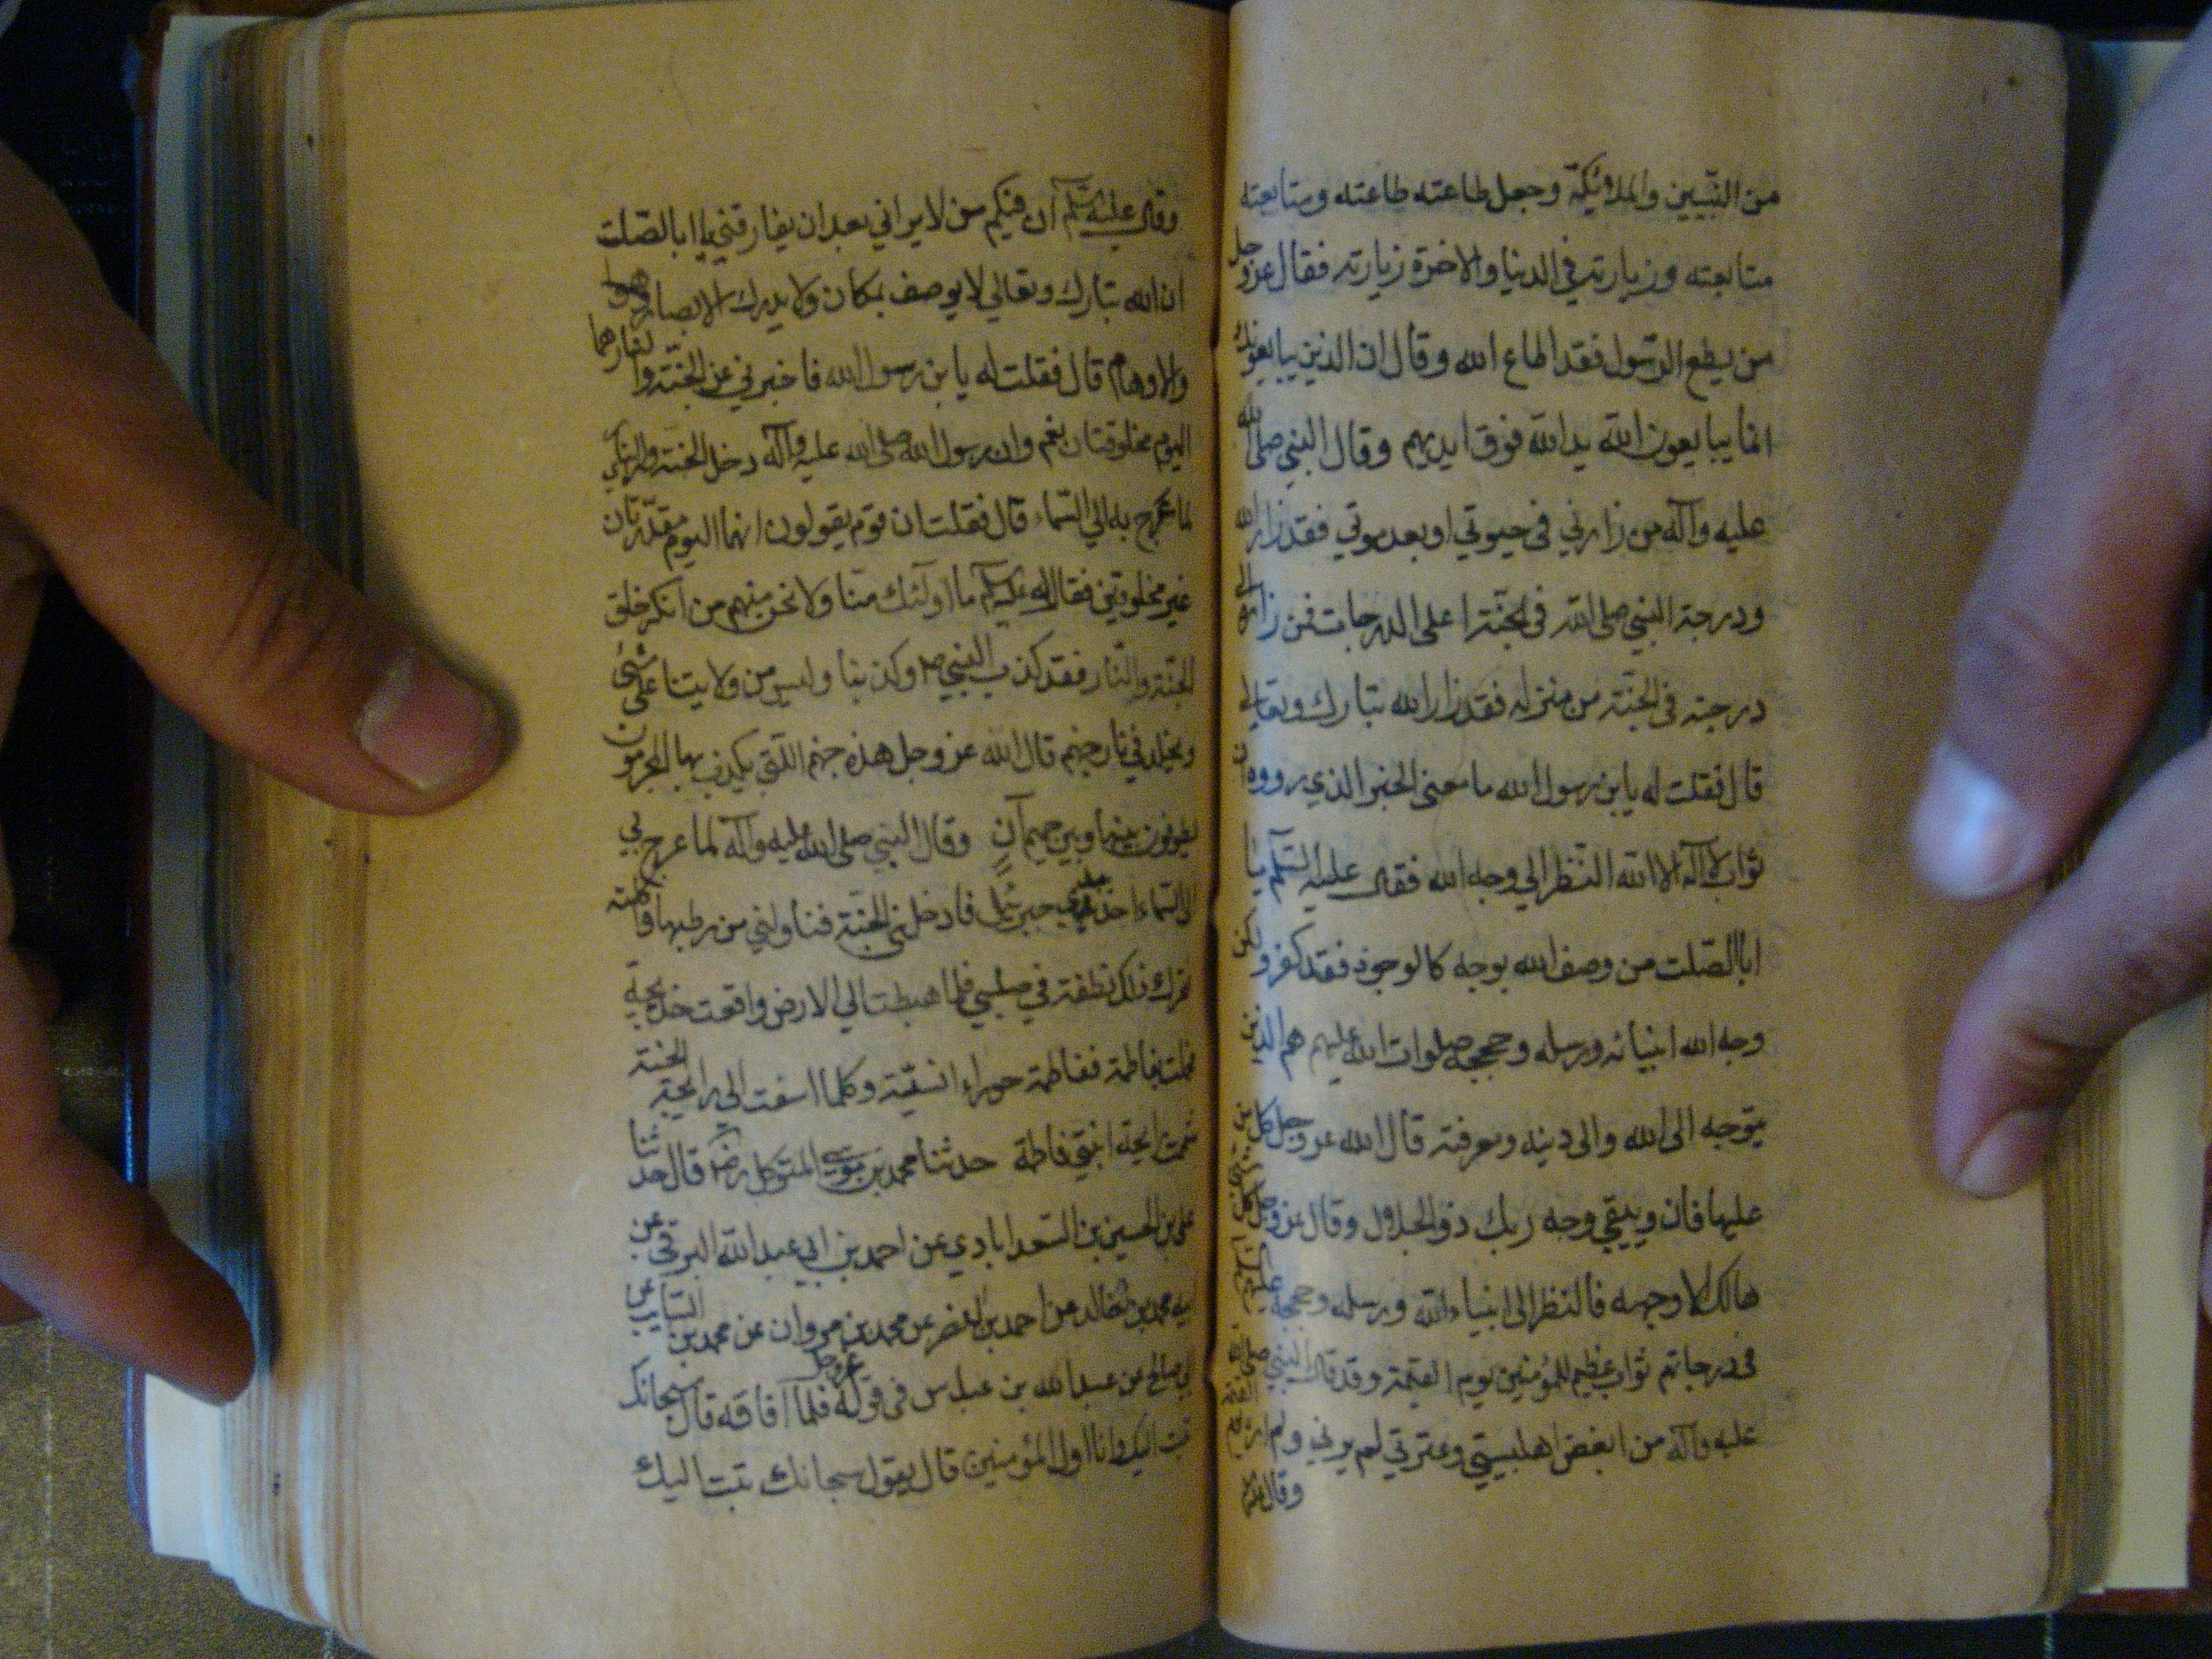 من النبيين والملائكة وجعل طاعته طاعته ومتابعته
متابعته وزيارته في الدنيا والاخرة زيارته فقال عز وجل
من يطع الرسول فقد اطاع الله وقال ان الذين يبايعونك
انما يبايعون الله يد الله فوق ايديهم وقال النبي صلى الله
عليه وآله من زارني في حيوتي او بعد موتي فقد زار الله
ودرجة النبي صلى الله في الجنة اعلى الدرجات فمن زاره الى
درجته في الجنة من منزله فقد زار الله تبارك وتعالى
قال فقلت له يا بن رسول الله ما معنى الخبر الذي رووه ان
ثواب لا اله الا الله النظر الى وجه الله فقال عليه السلم يا
ابا الصلت من وصف الله بوجه كالوجوه فقد كفر ولكن
وجه الله انبيائه ورسله وحججه صلوات الله عليهم هم الذين
يتوجه الى الله والى دينه ومعرفته قال الله عز وجل كل من
عليها فان ويبقى وجه ربك ذو الجلال وقال عز وجل كل شئ
هالك الا وجهه فالنظر الى انبياء الله ورسله وحججه عليهم
في درجاتهم ثواب عظيم للمؤمنين يوم القيمة وقد قال النبي صلى الله
عليه وآله من ابغض اهلبيتي وعترتي لم يرني ولم اره يوم القيمة
وقال عليه
وقال عليه السلم ان فيكم من لا يراني بعد ان يفارقني يا ابا الصلت
ان الله تبارك وتعالى لا يوصف بمكان ولا يدرك الابصار وهو
والاوهام قال فقلت له يا بن رسول الله فاخبرني عن الجنة والنار هما
اليوم مخلوقتان نعم وان رسول الله صلى الله عليه وآله دخل الجنة وراى النار
لما عرج به الى السماء قال فقلت ان قوم يقولون انهما اليوم مقدرتان
غير مخلوقتين فقال له عليه السلم ما اولئك منا ولا نحن منهم من انكر خلق
الجنة والنار فقد كذب النبي ص وكذبنا وليس من ولايتنا على شئ
ويخلد في نار جهنم قال الله عز وجل هذه جهنم التي يكذب بها المجرمون
يطوفون بينها وبين حميم آن وقال النبي صلى الله عليه وآله لما عرج بي
الى السماء اخذ بيدي جبرئيل فادخلني الجنة فناولني من رطبها فاكلته
فتحرك ذلك نطفة في صلبي فلما هبطت الى الارض واقعت خديجة
فحملت بفاطمة ففاطمة حوراء انسية وكلما اشتقت الى رايحة الجنة
شممت رايحة ابنتي فاطمة حدثنا محمد بن موسى المتوكل رض قال حدثنا
على بن الحسين بن السعدابادي عن احمد بن ابي عبد الله البرقي عن
ابيه محمد بن خالد عن احمد بن النضر عن محمد بن مروان عن محمد بن السايب عن
ابي صالح عن عبد الله بن عباس في قوله عز وجل فلما آفاقه قال سبحانك
تبت اليك وانا اول المؤمنين قال يقول سبحانك تبت اليك